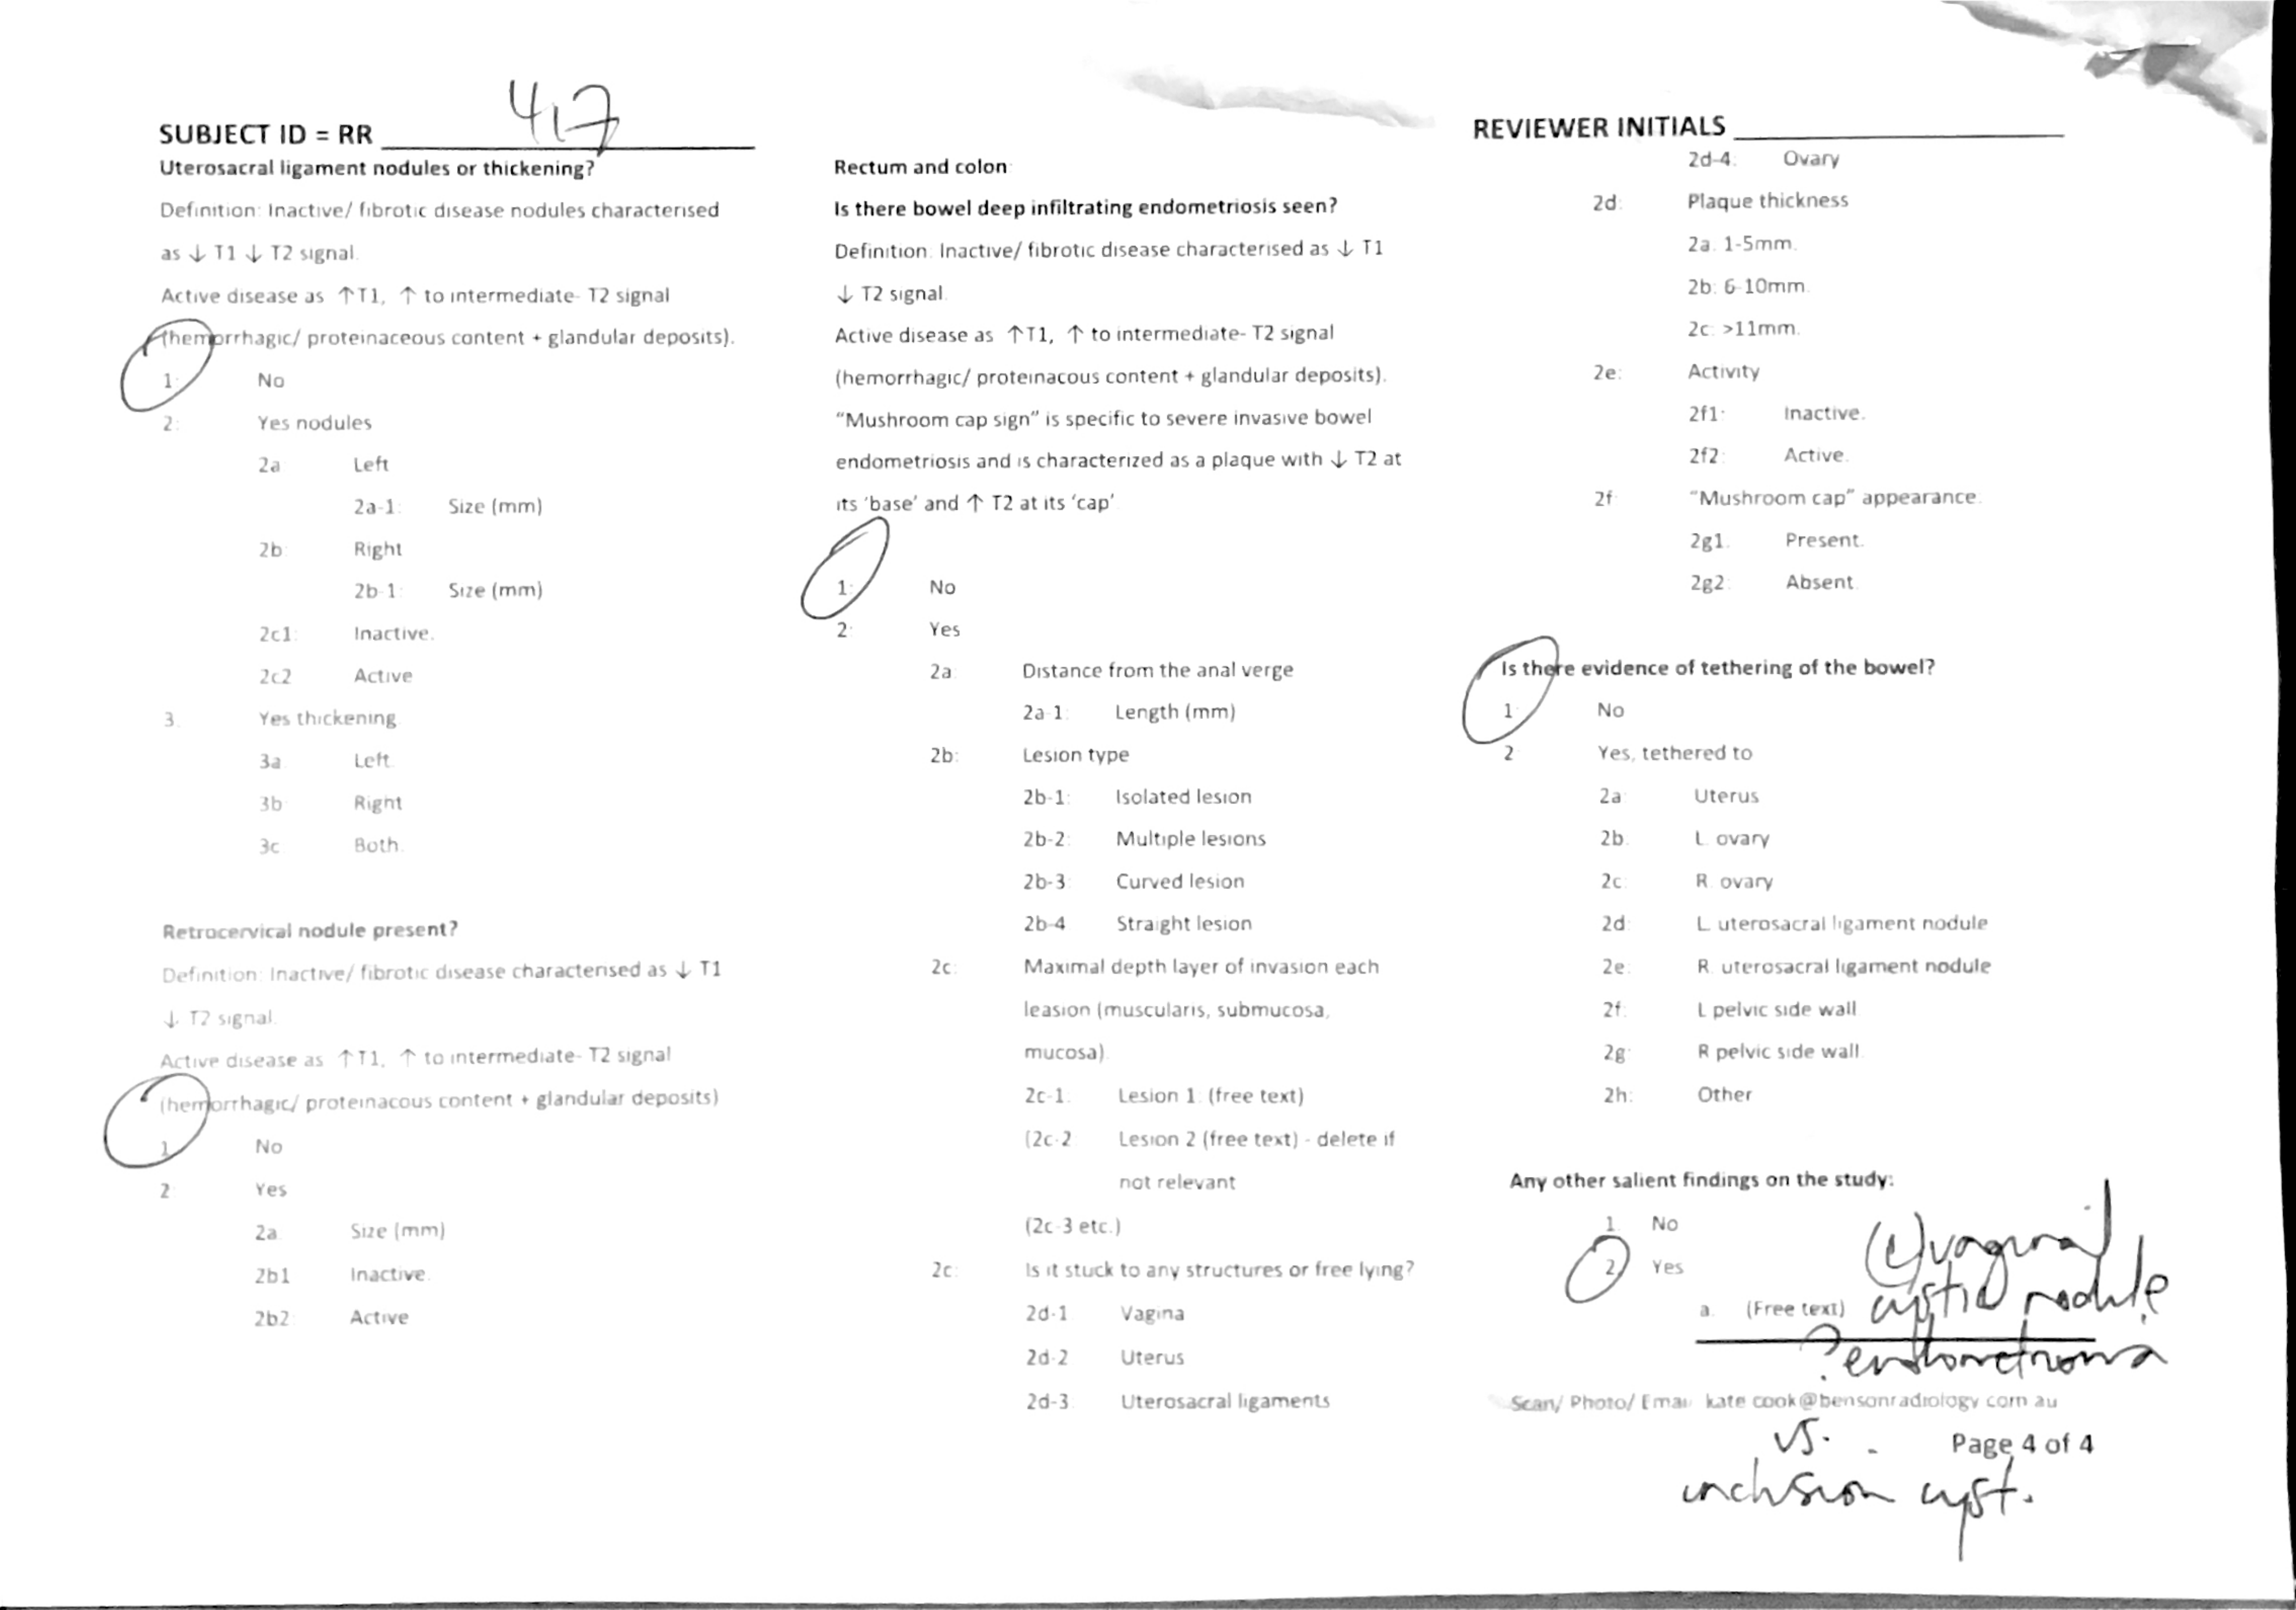 SUBJECT ID = RR 417
Uterosacral ligament nodules or thickening?
Definition: Inactive/ fibrotic disease nodules characterised
as ↓ T1 ↓ T2 signal.
Active disease as ↑T1, ↑ to intermediate- T2 signal
(hemorrhagic/ proteinaceous content + glandular deposits).
1: No
2: Yes nodules
2a Left
2a-1: Size (mm)
2b Right
2b-1: Size (mm)
2c1: Inactive.
2c2 Active
3. Yes thickening
3a Left.
3b Right
3c Both.
Retrocervical nodule present?
Definition: Inactive/ fibrotic disease characterised as ↓ T1
↓ T2 signal.
Active disease as ↑T1, ↑ to intermediate- T2 signal
(hemorrhagic/ proteinacous content + glandular deposits)
1 No
2: Yes
2a Size (mm)
2b1 Inactive.
2b2: Active
Rectum and colon:
Is there bowel deep infiltrating endometriosis seen?
Definition: Inactive/ fibrotic disease characterised as ↓ T1
↓ T2 signal.
Active disease as ↑T1, ↑ to intermediate- T2 signal
(hemorrhagic/ proteinacous content + glandular deposits).
“Mushroom cap sign” is specific to severe invasive bowel
endometriosis and is characterized as a plaque with ↓ T2 at
its ‘base’ and ↑ T2 at its ‘cap’
1: No
2: Yes
2a: Distance from the anal verge
2a-1: Length (mm)
2b: Lesion type
2b-1: Isolated lesion
2b-2: Multiple lesions
2b-3: Curved lesion
2b-4 Straight lesion
2c: Maximal depth layer of invasion each
leasion (muscularis, submucosa,
mucosa).
2c-1: Lesion 1: (free text)
(2c-2 Lesion 2 (free text) - delete if
not relevant
(2c-3 etc.)
2c: Is it stuck to any structures or free lying?
2d-1 Vagina
2d-2 Uterus
2d-3 Uterosacral ligaments
REVIEWER INITIALS
2d-4. Ovary
2d: Plaque thickness
2a. 1-5mm.
2b: 6-10mm.
2c: >11mm.
2e: Activity
2f1: Inactive.
2f2: Active.
2f “Mushroom cap” appearance.
2g1. Present.
2g2: Absent.
Is there evidence of tethering of the bowel?
1: No
2 Yes, tethered to
2a: Uterus
2b. L. ovary
2c: R. ovary
2d: L. uterosacral ligament nodule
2e. R. uterosacral ligament nodule
2f: L pelvic side wall
2g: R pelvic side wall.
2h: Other
Any other salient findings on the study:
1. No
2. Yes
a. (Free text) (L) vaginal
cystic nodule
? endometrioma
Scan/ Photo/ Email kate cook@bensonradiology com au
vs.
Page 4 of 4
inclusion cyst.